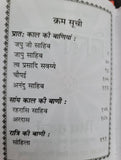 क्रम सूची
प्रातः काल की बाणियां
जपु जी साहिब
जापु साहिब
त्व प्रसादि सवय्ये
चौपई
अनंदु साहिब
सायं काल की बाणी
रहरासि साहिब
अरदास
रात्रि की बाणी
सोहिला